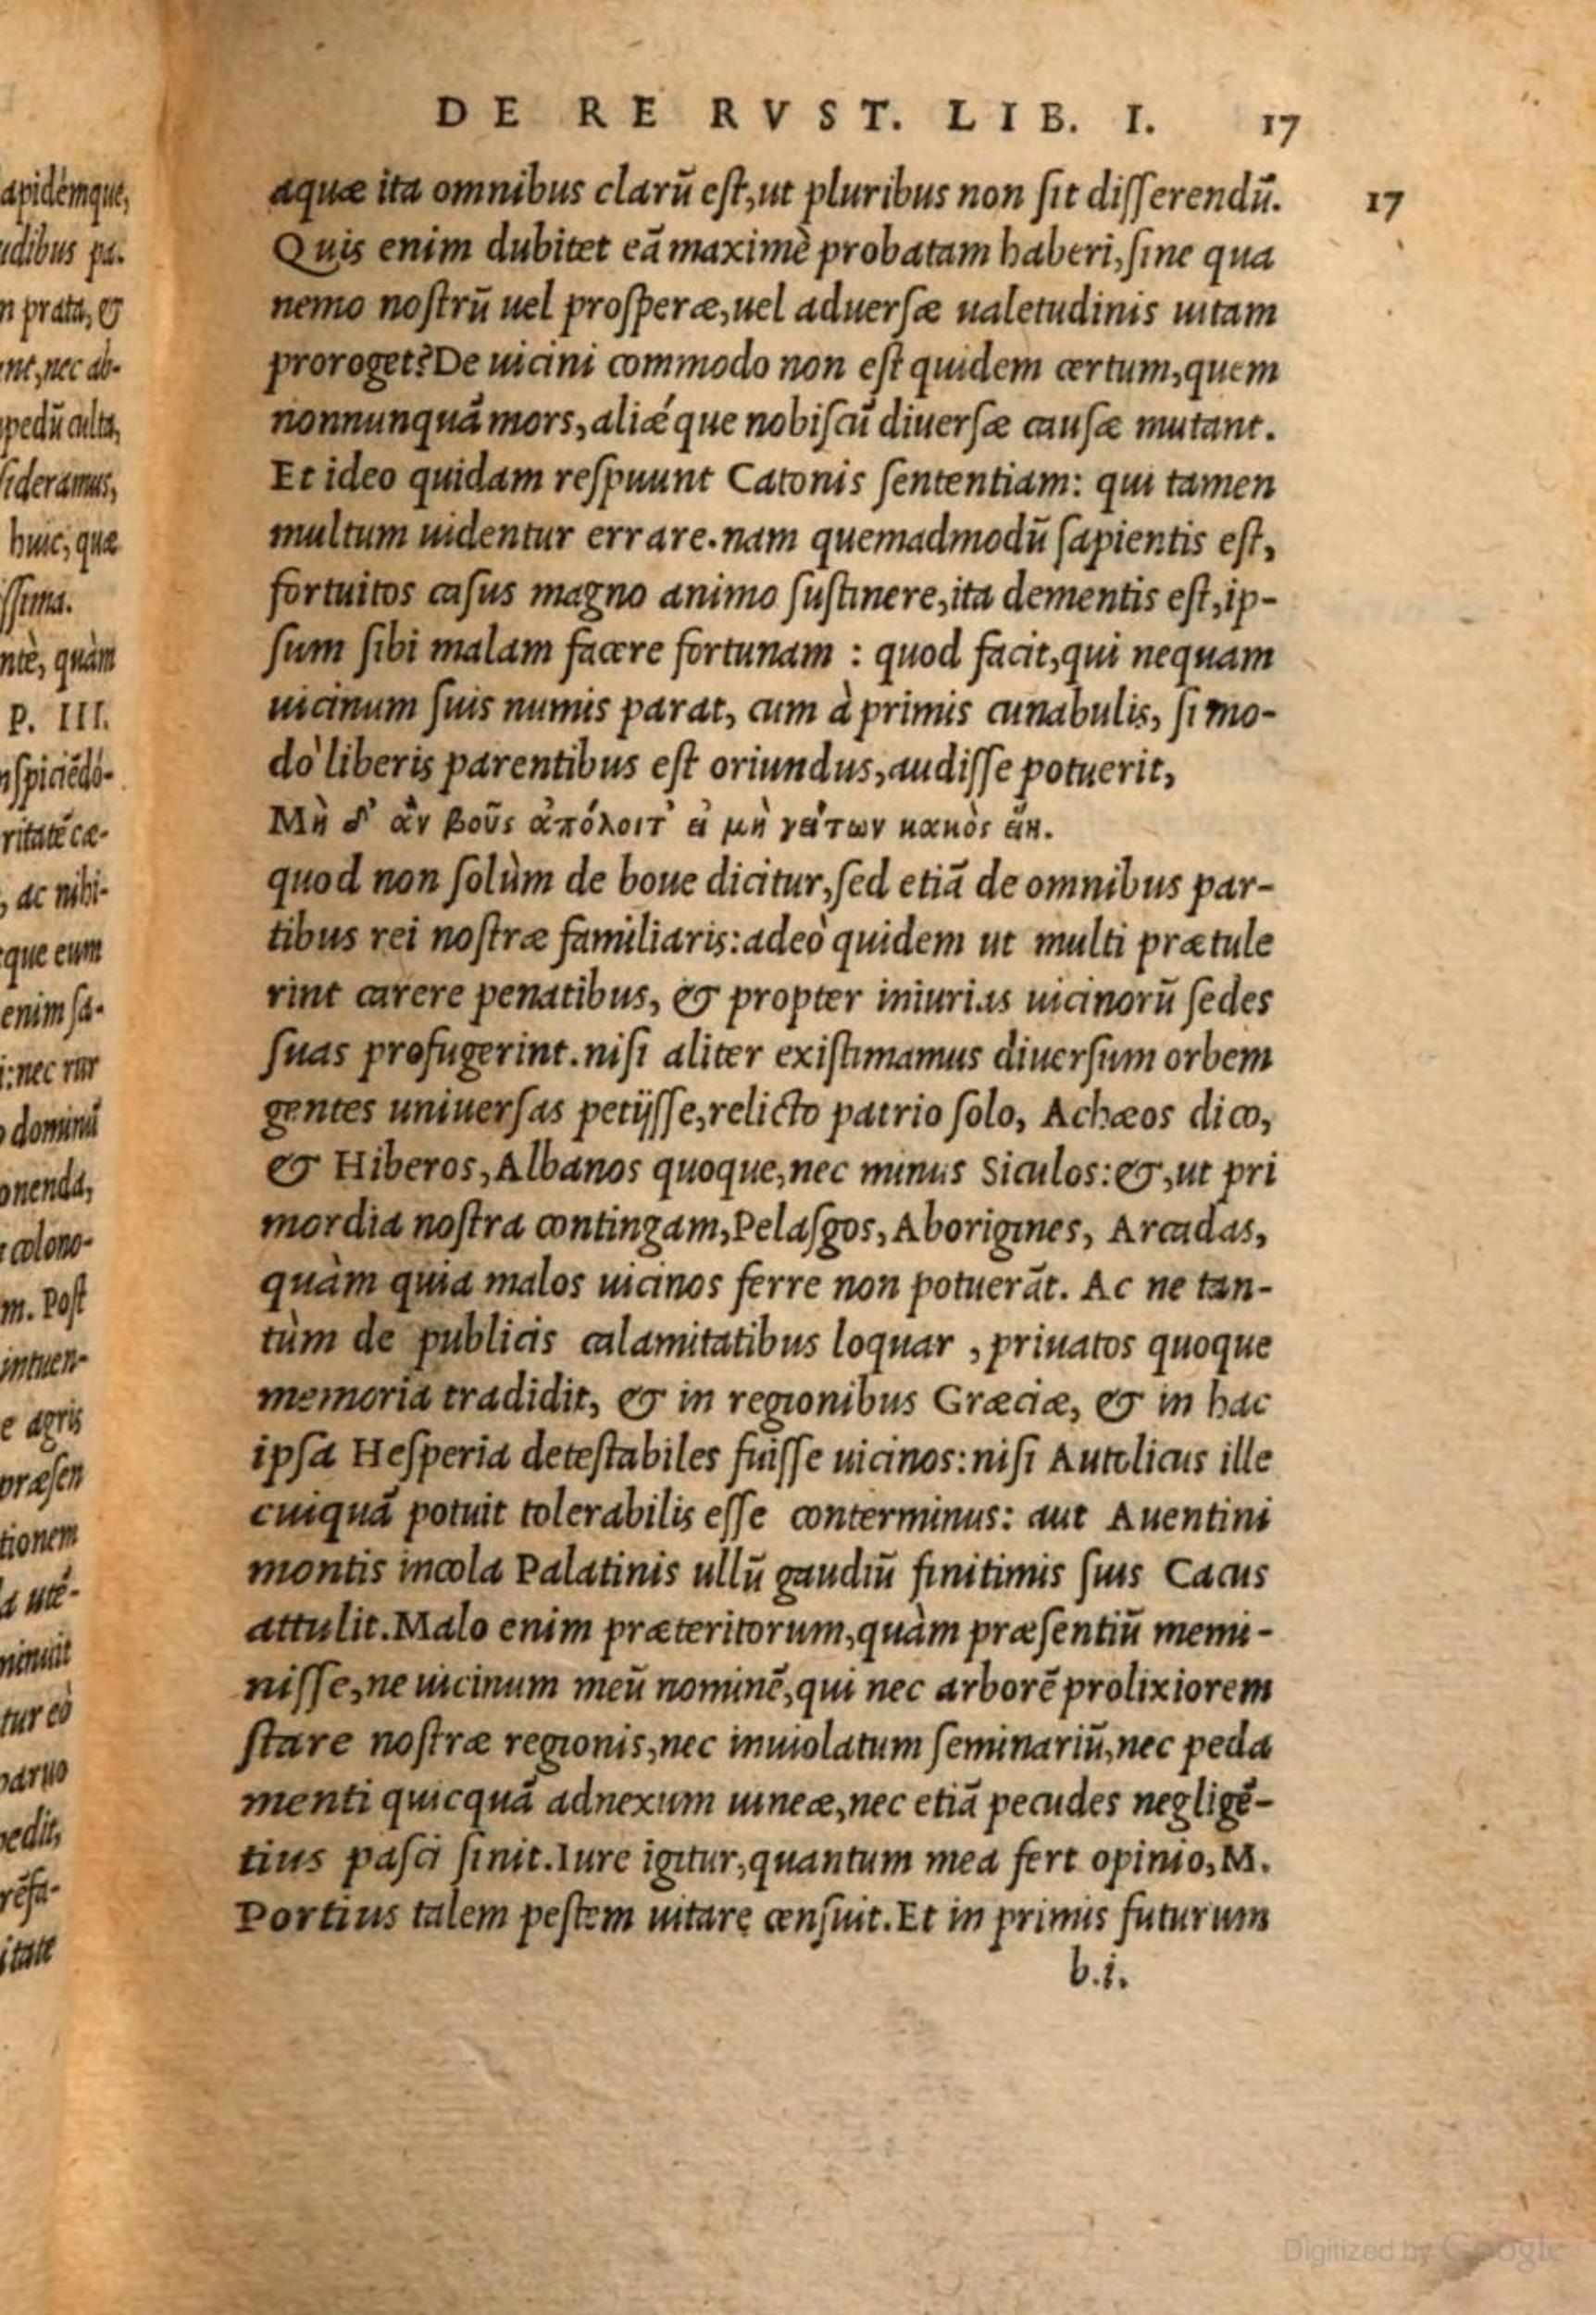 DE RE RVST. LIB. I. 17
aquæ ita omnibus clarũ eſt,ut pluribus non ſit diſſerendũ. 17
Quis enim dubitet eã maximè probatam haberi,ſine qua
nemo noſtrũ uel proſperæ,uel aduerſæ ualetudinis uitam
proroget?De uicini commodo non eſt quidem certum,quem
nonnunquã mors,aliǽque nobiſcũ diuerſæ cauſæ mutant.
Et ideo quidam reſpuunt Catonis ſententiam: qui tamen
multum uidentur errare.nam quemadmodũ ſapientis eſt,
fortuitos caſus magno animo ſuſtinere,ita dementis eſt,ip-
ſum ſibi malam facere fortunam : quod facit,qui nequam
uicinum ſuis numis parat, cum à primis cunabulis, ſi mo-
dò liberis parentibus eſt oriundus,audiſſe potuerit,
Μὴ δ' ἂν βοῦς ἀπόλοιτ' εἰ μὴ γείτων κακὸς εἴη.
quod non ſolùm de boue dicitur,ſed etiã de omnibus par-
tibus rei noſtræ familiaris:adeò quidem ut multi prætule
rint carere penatibus, & propter iniurias uicinorũ ſedes
ſuas profugerint.niſi aliter exiſtimamus diuerſum orbem
gentes uniuerſas petijſſe,relicto patrio ſolo, Achæos dico,
& Hiberos,Albanos quoque,nec minus Siculos:&,ut pri
mordia noſtra contingam,Pelaſgos,Aborigines, Arcadas,
quàm quia malos uicinos ferre non potuerãt. Ac ne tan-
tùm de publicis calamitatibus loquar , priuatos quoque
memoria tradidit, & in regionibus Græciæ, & in hac
ipſa Heſperia deteſtabiles fuiſſe uicinos:niſi Autolicus ille
cuiquã potuit tolerabilis eſſe conterminus: aut Auentini
montis incola Palatinis ullũ gaudiũ finitimis ſuis Cacus
attulit.Malo enim præteritorum,quàm præſentiũ memi-
niſſe,ne uicinum meũ nominẽ,qui nec arborẽ prolixiorem
ſtare noſtræ regionis,nec inuiolatum ſeminariũ,nec peda
menti quicquã adnexum uineæ,nec etiã pecudes negligẽ-
tius paſci ſinit.Iure igitur,quantum mea fert opinio,M.
Portius talem peſtem uitare cenſuit.Et in primis futurum
b.i.
apidémque,
udibus pa-
n prata, &
nt,nec ab-
pedũ culta,
ſideramus,
huic, quæ
ſſima.
ntè, quàm
P. III.
nſpiciẽdó-
ritatẽ cæ-
, ac nihi-
que eum
enim ſa-
i:nec rur
o dominũ
onenda,
colono-
m. Poſt
intuen-
e agris
præſen
tionem
a utẽ-
minuit
tur eò
paruo
pedit,
rẽſa-
itate
Digitized by Google